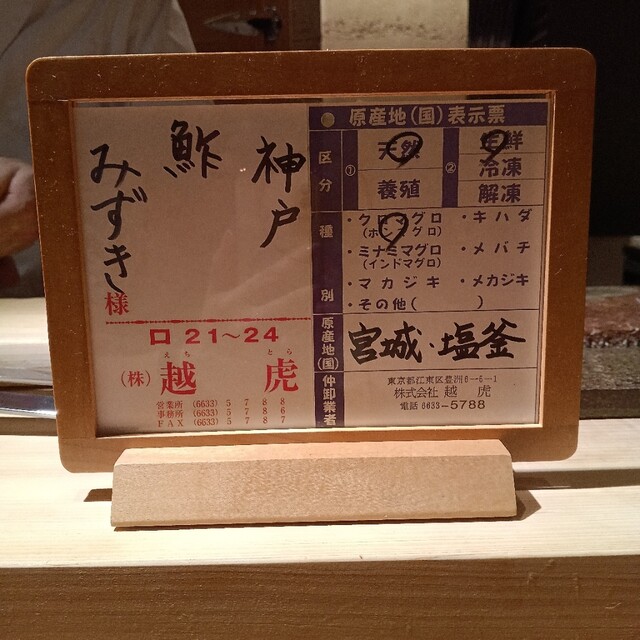 神戸
鮓
みずき様
口 21〜24
えち とら
(株) 越 虎
営業所 (6633) 5788
事務所 (6633) 5786
FAX (6633) 5787
原産地(国)表示票
区分
① 天然
養殖
② 生鮮
冷凍
解凍
種別
・クロマグロ
(ホンマグロ)
・キハダ
・ミナミマグロ
(インドマグロ)
・メバチ
・マカジキ
・メカジキ
・その他( )
原産地(国)
宮城・塩釜
仲卸業者
東京都江東区豊洲6-6-1
株式会社 越 虎
電話 6633-5788